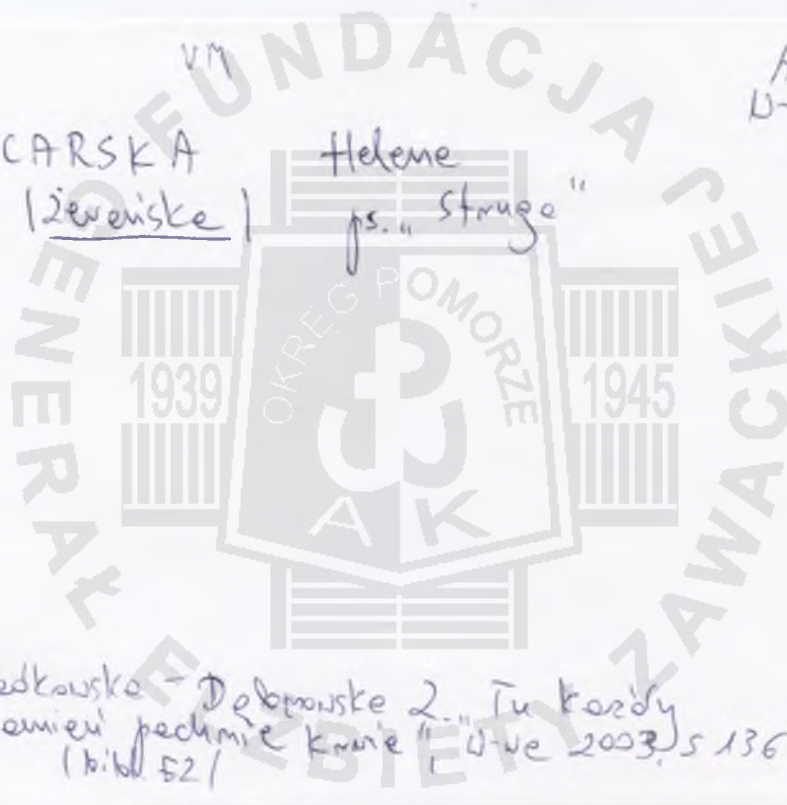 VM
CARSKA Helena
/Żerańska/ ps. „Struga"
FUNDACJA GENERAŁ ELŻBIETY ZAWACKIEJ
OKRĘG POMORZE
1939 1945
AK
Dąbrowska Z. „Tu każdy
kamień pachnie krwią", W-wa 2003, s 136
(bibl 52)